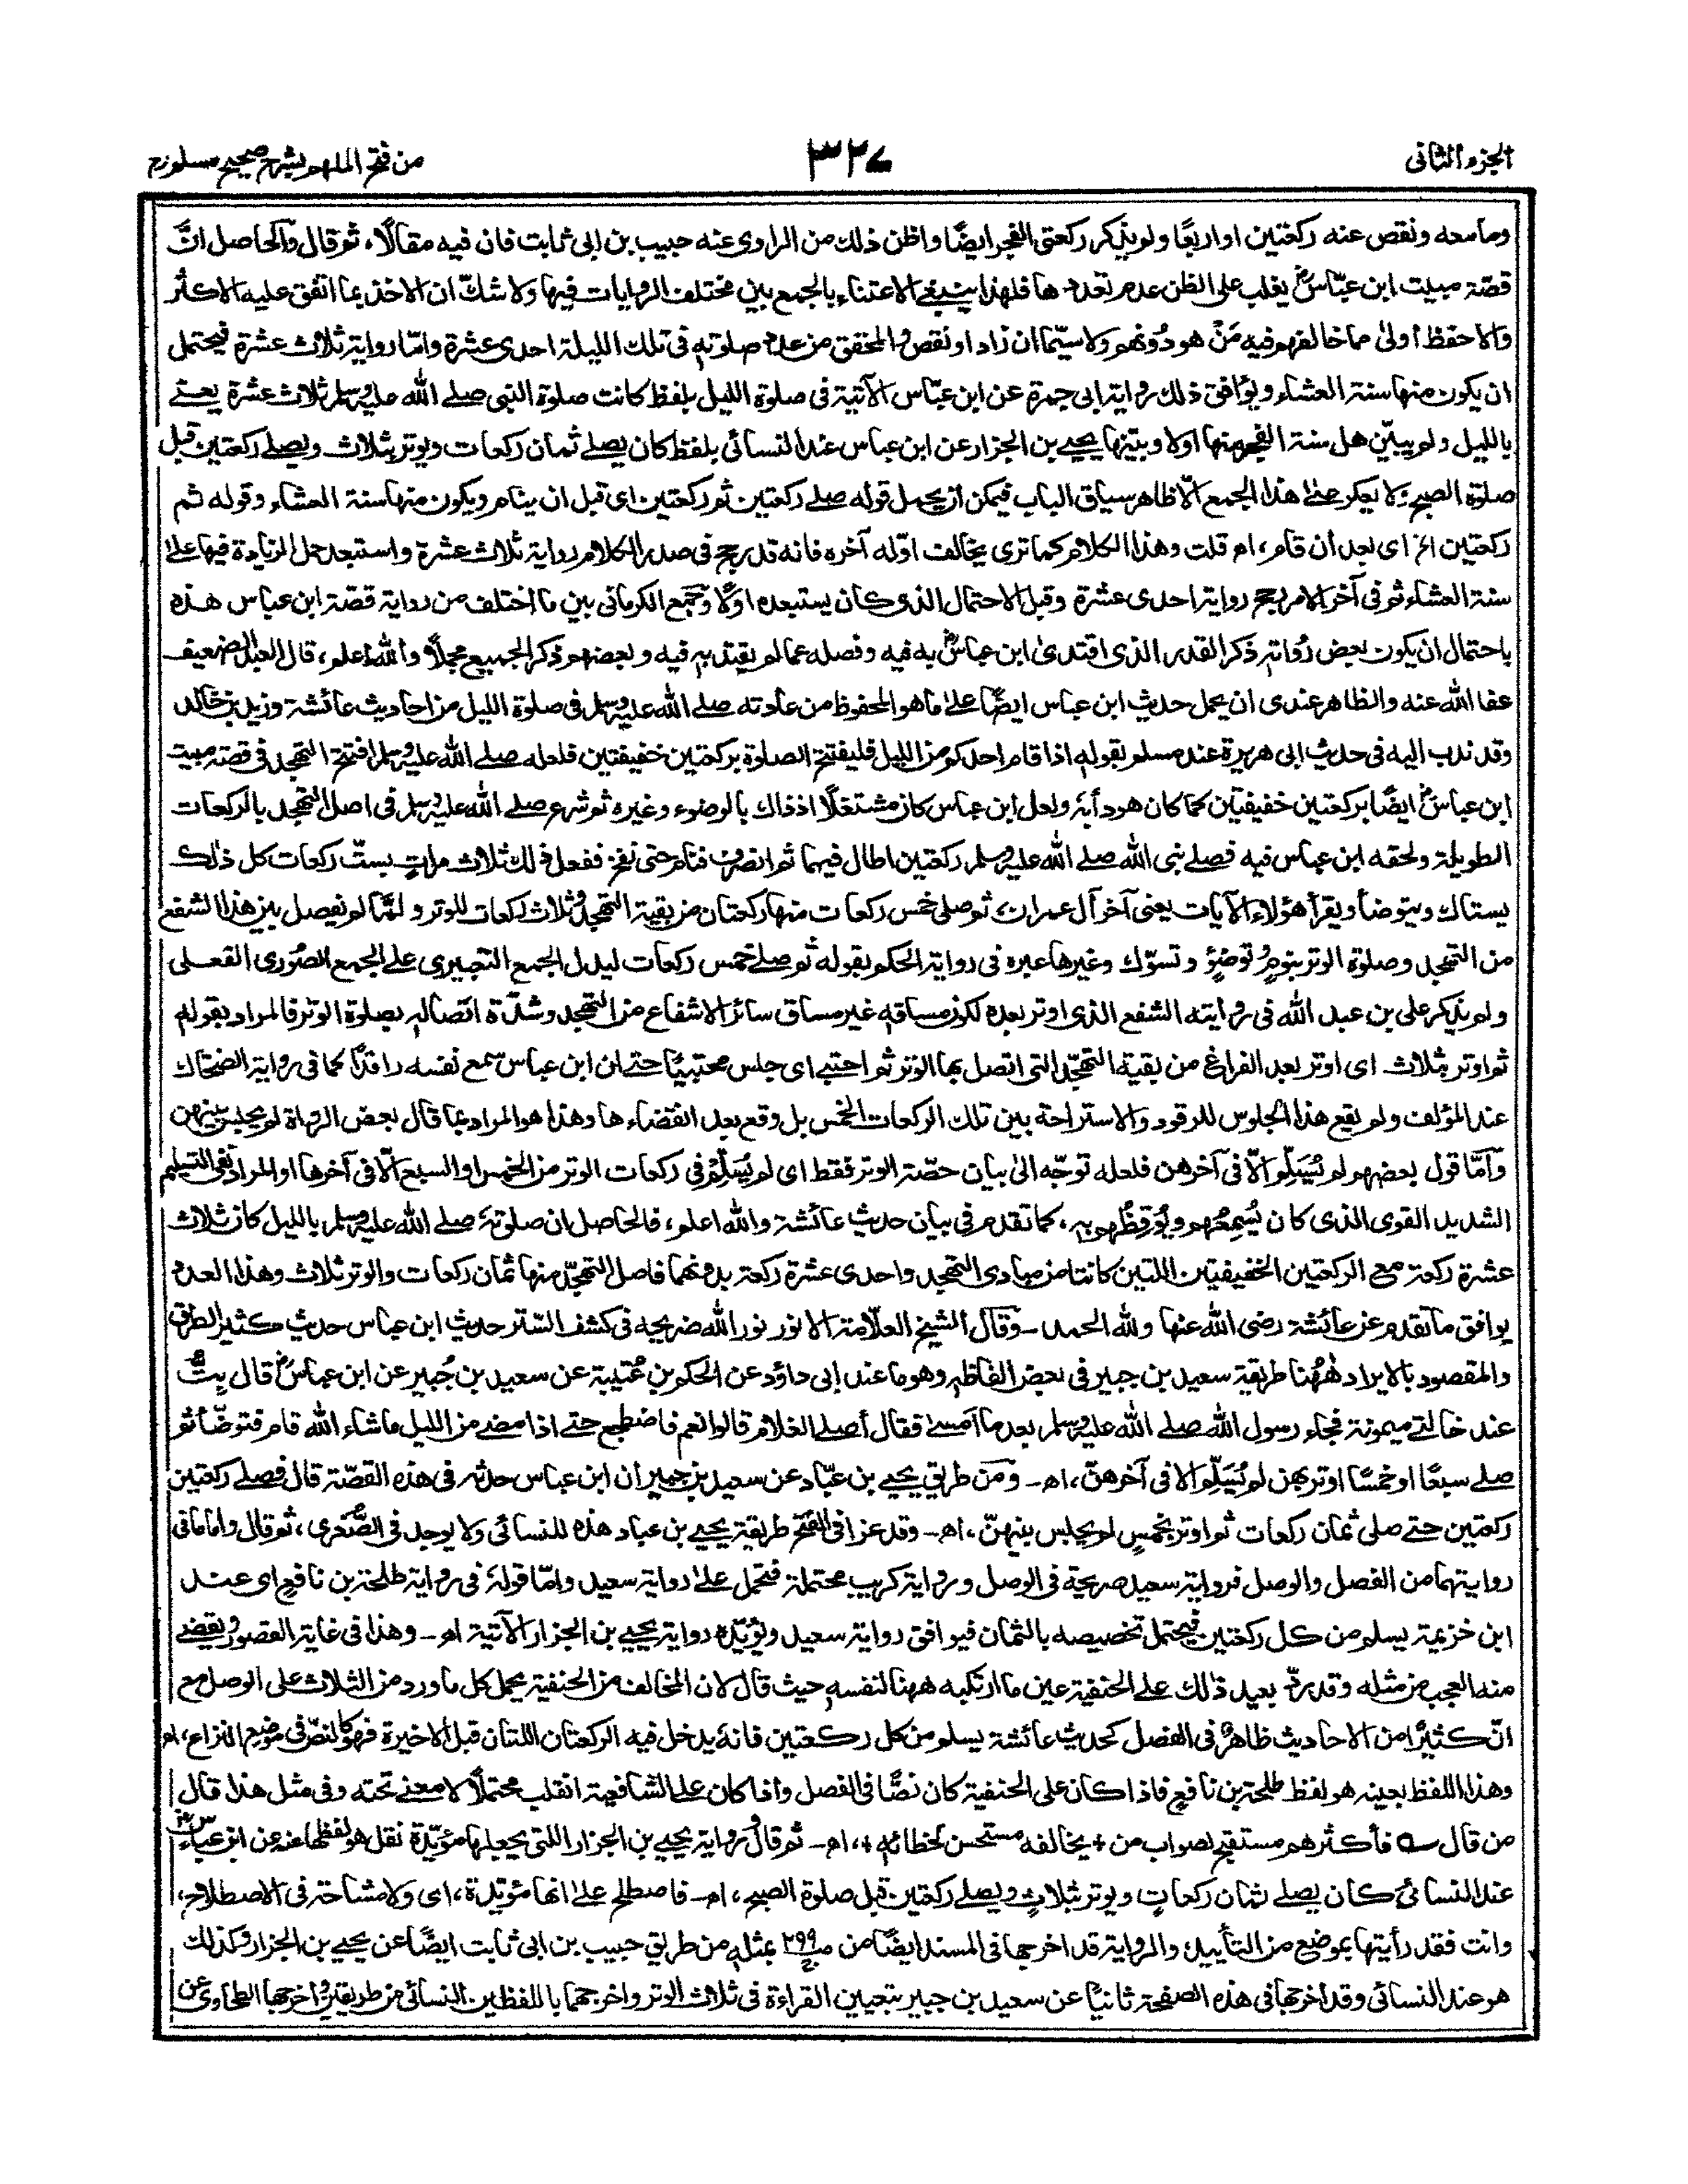 الجزء الثانی
٣٢٧
من فتح الملهم بشرح صحیح مسلم
ومامعه ونقص عنه رکعتین اواربعًا ولم یذکر رکعتی الفجر ایضًا واظن ذلك من الراوی عنه حبیب بن ابی ثابت فان فیه مقالًا، ثم قال والحاصل انَّ
قصّة مبیت ابن عبّاسؓ یغلب علی الظن عدم تعددها فلهذا ینبغی الاعتناء بالجمع بین مختلف الروایات فیها ولا شكّ ان الاخذ بما اتفق علیه الاکثر
والاحفظ اولیٰ مما خالفهم فیه مَنْ هو دُونهم ولا سیّما ان زاد او نقص والمحقق من عدد صلوته فی تلك اللیلة احدی عشرة وامّا روایة ثلاث عشرة فیحتمل
ان یکون منها سنة العشاء ویوافق ذلك روایة ابی جمرة عن ابن عبّاس الآتیة فی صلوة اللیل بلفظ کانت صلوة النبی صلے الله علیه وسلم ثلاث عشرة یعنے
باللیل ولم یبیّن هل سنة الفجر منها اولا وبیّنها یحیے بن الجزار عن ابن عباس عند النسائی بلفظ کان یصلے ثمان رکعات ویوتر بثلاث ویصلے رکعتین قبل
صلوة الصبح ولا یعکر علیٰ هذا الجمع الّا ظاهر سیاق الباب فیمکن ان یحمل قوله صلے رکعتین ثم رکعتین ای قبل ان ینام ویکون منها سنة العشاء وقوله ثم
رکعتین الخ ای بعد ان قام، اه قلت وهذا الکلام کما تری یخالف اوّله آخره فانه قد رجح فی صدر الکلام روایة ثلاث عشرة واستبعد حمل الزیادة فیها علیٰ
سنة العشاء ثم فی آخر الامر رجح روایة احدی عشرة وقبل الاحتمال الذی کان یستبعده اوّلًا وجمع الکرمانی بین ما اختلف من روایة قصّة ابن عباس هذه
باحتمال ان یکون بعض رُواته ذکر القدر الذی اقتدیٰ ابن عباسؓ به فیه وفصله عما لم یقتد به فیه وبعضهم ذکر الجمیع مجملًا والله اعلم، قال العبد الضعیف
عفا الله عنه والظاهر عندی ان یحمل حدیث ابن عباس ایضًا علیٰ ما هو المحفوظ من عادته صلے الله علیه وسلم فی صلوة اللیل من احادیث عائشة وزید بن خالد
وقد ندب الیه فی حدیث ابی هریرة عند مسلم بقوله اذا قام احدکم من اللیل فلیفتتح الصلوة برکعتین خفیفتین فلعله صلے الله علیه وسلم افتتح التهجد فی قصة مبیت
ابن عباسؓ ایضًا برکعتین خفیفتین کما کان هو دأبه ولعل ابن عباس کان مشتغلًا اذ ذاك بالوضوء وغیره ثم شرع صلے الله علیه وسلم فی اصل التهجد بالرکعات
الطویلة ولحقه ابن عباس فیه فصلے نبی الله صلے الله علیه وسلم رکعتین اطال فیهما ثم انصرف فنام حتی نفخ ففعل ذلك ثلاث مراتٍ بستّ رکعات کل ذلك
یستاك ویتوضأ ویقرأ هؤلاء الآیات یعنی آخر آل عمران، ثم صلی خمس رکعات منها رکعتان من بقیة التهجد وثلاث رکعات للوتر ولمّا لم یفصل بین هذا الشفع
من التهجد وصلوة الوتر بنومٍ وتوضؤٍ وتسوّك وغیرها عبره فی روایة الحکم بقوله ثم صلے خمس رکعات لیدل الجمع التعبیری علی الجمع الصُوری الفعلی
ولم یذکر علی بن عبد الله فی روایته الشفع الذی اوتر بعده لکون مساقه غیر مساق سائر الاشفاع من التهجد وشدّة اتّصاله بصلوة الوتر فالمراد بقوله
ثم اوتر بثلاث ای اوتر بعد الفراغ من بقیة التهجّد التی اتصل بها الوتر ثم احتبے ای جلس محتبیًا حتے ان ابن عباس سمع نفسه راقدًا کما فی روایة الضحاك
عند المؤلف ولم یقع هذا الجلوس للرقود والاستراحة بین تلك الرکعات الخمس بل وقع بعد انقضاءها وهذا هو المراد بما قال بعض الرواة لم یجلس بینهن
وأمّا قول بعضهم لم یُسَلِّم الّا فی آخرهن فلعله توجّه الیٰ بیان حصّة الوتر فقط ای لم یُسَلِّم فی رکعات الوتر من الخمس او السبع الّا فی آخرها او المراد نفی التسلیم
الشدید القوی الذی کان یُسمِعُهم ویُوقِظُهم به، کما تقدم فی بیان حدیث عائشة والله اعلم، فالحاصل ان صلوته صلے الله علیه وسلم باللیل کان ثلاث
عشرة رکعة مع الرکعتین الخفیفتین اللتین کانتا من مبادی التهجد واحدی عشرة رکعة بدونهما فاصل التهجّد منها ثمان رکعات والوتر ثلاث وهذا العدد
یوافق ما تقدم عن عائشة رضی الله عنها ولله الحمد۔ وقال الشیخ العلّامة الانور نور الله ضریحه فی کشف السّتر حدیث ابن عباس حدیث کثیر الطرق
والمقصود بالایراد هٰهُنا طریقة سعید بن جبیر فی بعض الفاظه وهو ما عند ابی داؤد عن الحکم بن عُتیبة عن سعید بن جُبیر عن ابن عباسؓ قال بِتُّ
عند خالتے میمونة فجاء رسول الله صلے الله علیه وسلم بعد ما أمسیٰ فقال أصلے الغلام قالوا نعم فاضطجع حتے اذا مضے من اللیل ما شاء الله قام فتوضّأ ثم
صلے سبعًا او خمسًا اوتر بهن لم یُسَلِّم الا فی آخرهنّ، اه۔ ومن طریق یحیے بن عبّاد عن سعید بن جبیر ان ابن عباس حدثه فی هذه القصّة قال فصلے رکعتین
رکعتین حتے صلی ثمان رکعات ثم اوتر بخمسٍ لم یجلس بینهنّ، اه۔ وقد عزا فی الفتح طریقة یحیے بن عباد هذه للنسائی ولا یوجد فی الصُّغری، ثم قال واما ما فی
روایتهما من الفصل والوصل فروایة سعید صریحة فی الوصل وروایة کریب محتملة فتحمل علیٰ روایة سعید وامّا قولهٗ فی روایة طلحة بن نافع ای عند
ابن خزیمة یسلم من کل رکعتین فیحتمل تخصیصه بالثمان فیوافق روایة سعید ویؤیّده روایة یحیے بن الجزار الآتیة اه۔ وهذا فی غایة القصور ویقضے
منه العجب من مثله وقد ردّ بعید ذٰلك علے الحنفیة عین ما ارتکبه ههنا لنفسه حیث قال لان المخالف من الحنفیة یحمل کل ما ورد من الثلاث علی الوصل مع
انّ کثیرًا من الاحادیث ظاهرٌ فی الفصل کحدیث عائشة یسلم من کل رکعتین فانهٗ یدخل فیه الرکعتان اللتان قبل الاخیرة فهو کالنصّ فی موضع النزاع، اه
وهذا اللفظ بعینه هو لفظ طلحة بن نافع فاذا کان علی الحنفیة کان نصًّا فی الفصل واذا کان علے الشافعیة انقلب محتملًا لا معنے تحته وفی مثل هذا قال
من قال ؎ فأکثرهم مستقبح لصواب من + یخالفه مستحسن لخطائه +، اه۔ ثم قال وروایة یحیے بن الجزار اللتی یجعلها مؤیّدة نقل هو لفظها عنه عن ابن عبّاس
عند النسائی کان یصلے ثمان رکعاتٍ ویوتر بثلاثٍ ویصلے رکعتین قبل صلوة الصبح، اه۔ فاصطلح علےٰ انها مؤیّدة، ای ولا مشاحة فی الاصطلاح،
وانت فقد رأیتها بموضع من التأیید، والروایة قد اخرجها فی المسند ایضًا من ص٢٩٩ بمثله من طریق حبیب بن ابی ثابت ایضًا عن یحیے بن الجزار وکذلك
هو عند النسائی وقد اخرجها فی هذه الصفحة ثانیًا عن سعید بن جبیر بتعیین القراءة فی ثلاث الوتر واخرجهما باللفظین النسائی من طریقین واخرجها الطحاوی عن